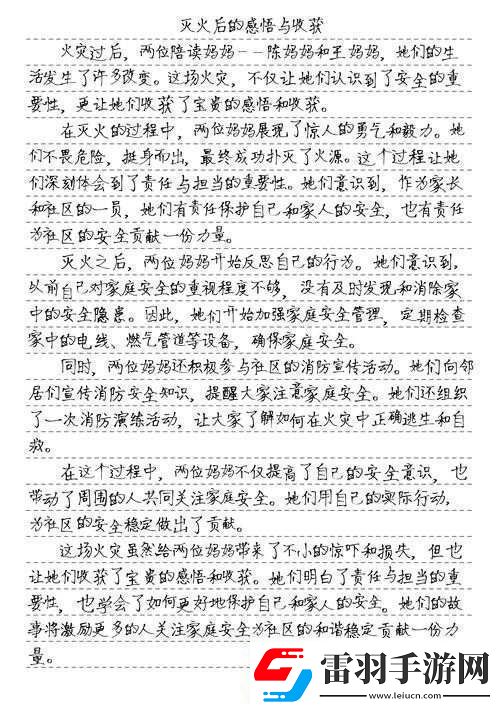 灭火后的感悟与收获
火灾过后，两位陪读妈妈——陈妈妈和王妈妈，她们的生
活发生了许多改变。这场火灾，不仅让她们认识到了安全的重
要性，更让她们收获了宝贵的感悟和收获。
在灭火的过程中，两位妈妈展现了惊人的勇气和毅力。她
们不畏危险，挺身而出，最终成功扑灭了火源。这个过程让她
们深刻体会到了责任与担当的重要性。她们意识到，作为家长
和社区的一员，她们有责任保护自己和家人的安全，也有责任
为社区的安全贡献一份力量。
灭火之后，两位妈妈开始反思自己的行为。她们意识到，
以前自己对家庭安全的重视程度不够，没有及时发现和消除家
中的安全隐患。因此，她们开始加强家庭安全管理，定期检查
家中的电线、燃气管道等设备，确保家庭安全。
同时，两位妈妈还积极参与社区的消防宣传活动。她们向邻
居们宣传消防安全知识，提醒大家注意家庭安全。她们还组织
了一次消防演练活动，让大家了解如何在火灾中正确逃生和自
救。
在这个过程中，两位妈妈不仅提高了自己的安全意识，也
带动了周围的人共同关注家庭安全。她们用自己的实际行动，
为社区的安全稳定做出了贡献。
这场火灾虽然给两位妈妈带来了不小的惊吓和损失，但也
让她们收获了宝贵的感悟和收获。她们明白了责任与担当的重
要性，也学会了如何更好地保护自己和家人的安全。她们的故
事将激励更多的人关注家庭安全为社区的和谐稳定贡献一份力
量。
雷羽手游网
www.leiucn.com